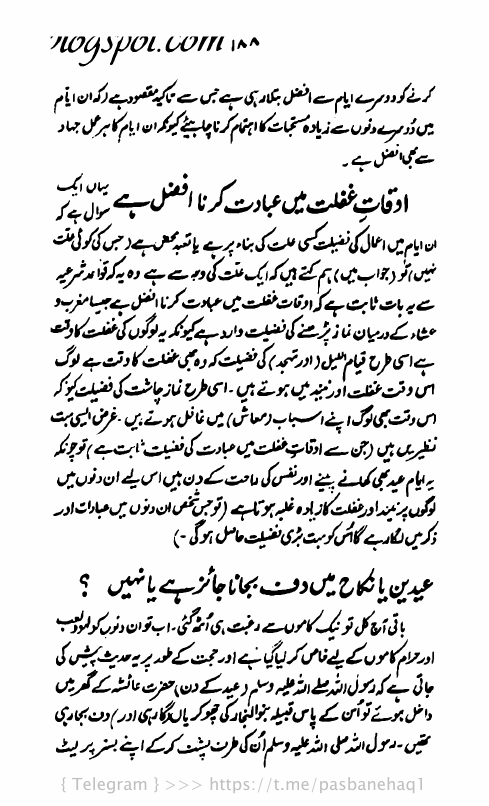 blogspot.com ۱۸۸
کرنے کو دوسرے ایام سے افضل بتلا رہی ہے جس سے تاکید مقصود ہے (کہ ان ایام
میں دوسرے دنوں سے زیادہ مستحبات کا اہتمام کرنا چاہیئے کیونکہ ان ایام کا ہر عمل جہاد
سے بھی افضل ہے ۔
اوقاتِ غفلت میں عبادت کرنا افضل ہے یہاں ایک
سوال ہے کہ
ان ایام میں اعمال کی فضیلت کسی علت کی بناء پر ہے یا تعبد محض ہے (جس کی کوئی علت
نہیں) تو (جواب میں) ہم کہتے ہیں کہ ایک علت کی وجہ سے ہے وہ یہ کہ قواعد شرعیہ
سے یہ بات ثابت ہے کہ اوقات غفلت میں عبادت کرنا افضل ہے جیسا مغرب و
عشاء کے درمیان نماز پڑھنے کی فضیلت وارد ہے کیونکہ یہ لوگوں کی غفلت کا وقت
ہے اسی طرح قیام اللیل (اور تہجد) کی فضیلت کہ وہ بھی غفلت کا وقت ہے لوگ
اس وقت غفلت اور نیند میں ہوتے ہیں ۔ اسی طرح نماز چاشت کی فضیلت کیونکہ
اس وقت بھی لوگ اپنے اسباب (معاش) میں غافل ہوتے ہیں ۔ غرض ایسی بہت
نظیریں ہیں (جن سے اوقات غفلت میں عبادت کی فضیلت ثابت ہے) تو چونکہ
یہ ایام عید بھی کھانے پینے اور نفس کی راحت کے دن ہیں اس لیے ان دنوں میں
لوگوں پر نیند اور غفلت کا زیادہ غلبہ ہوتا ہے (تو جو شخص ان دنوں میں عبادات اور
ذکر میں لگا رہے گا اُس کو بہت بڑی فضیلت حاصل ہوگی ۔)
عیدین یا نکاح میں دف بجانا جائز ہے یا نہیں ؟
باقی آج کل تو نیک کاموں سے رغبت ہی اُٹھ گئی ۔ اب تو ان دنوں کو لہو و لعب
اور حرام کاموں کے لیے خاص کر لیا گیا ہے اور حجت کے طور پر یہ حدیث پیش کی
جاتی ہے کہ رسول اللہ صلے اللہ علیہ وسلم (عید کے دن) حضرت عائشہ کے گھر میں
داخل ہوئے تو اُس کے پاس قبیلہ بنو النجار کی چھوکریاں گا رہی (اور) دف بجا رہی
تھیں ۔ رسول اللہ صلی اللہ علیہ وسلم اُن کی طرف پشت کر کے اپنے بستر پر لیٹ
{ Telegram } >>> https://t.me/pasbanehaq1